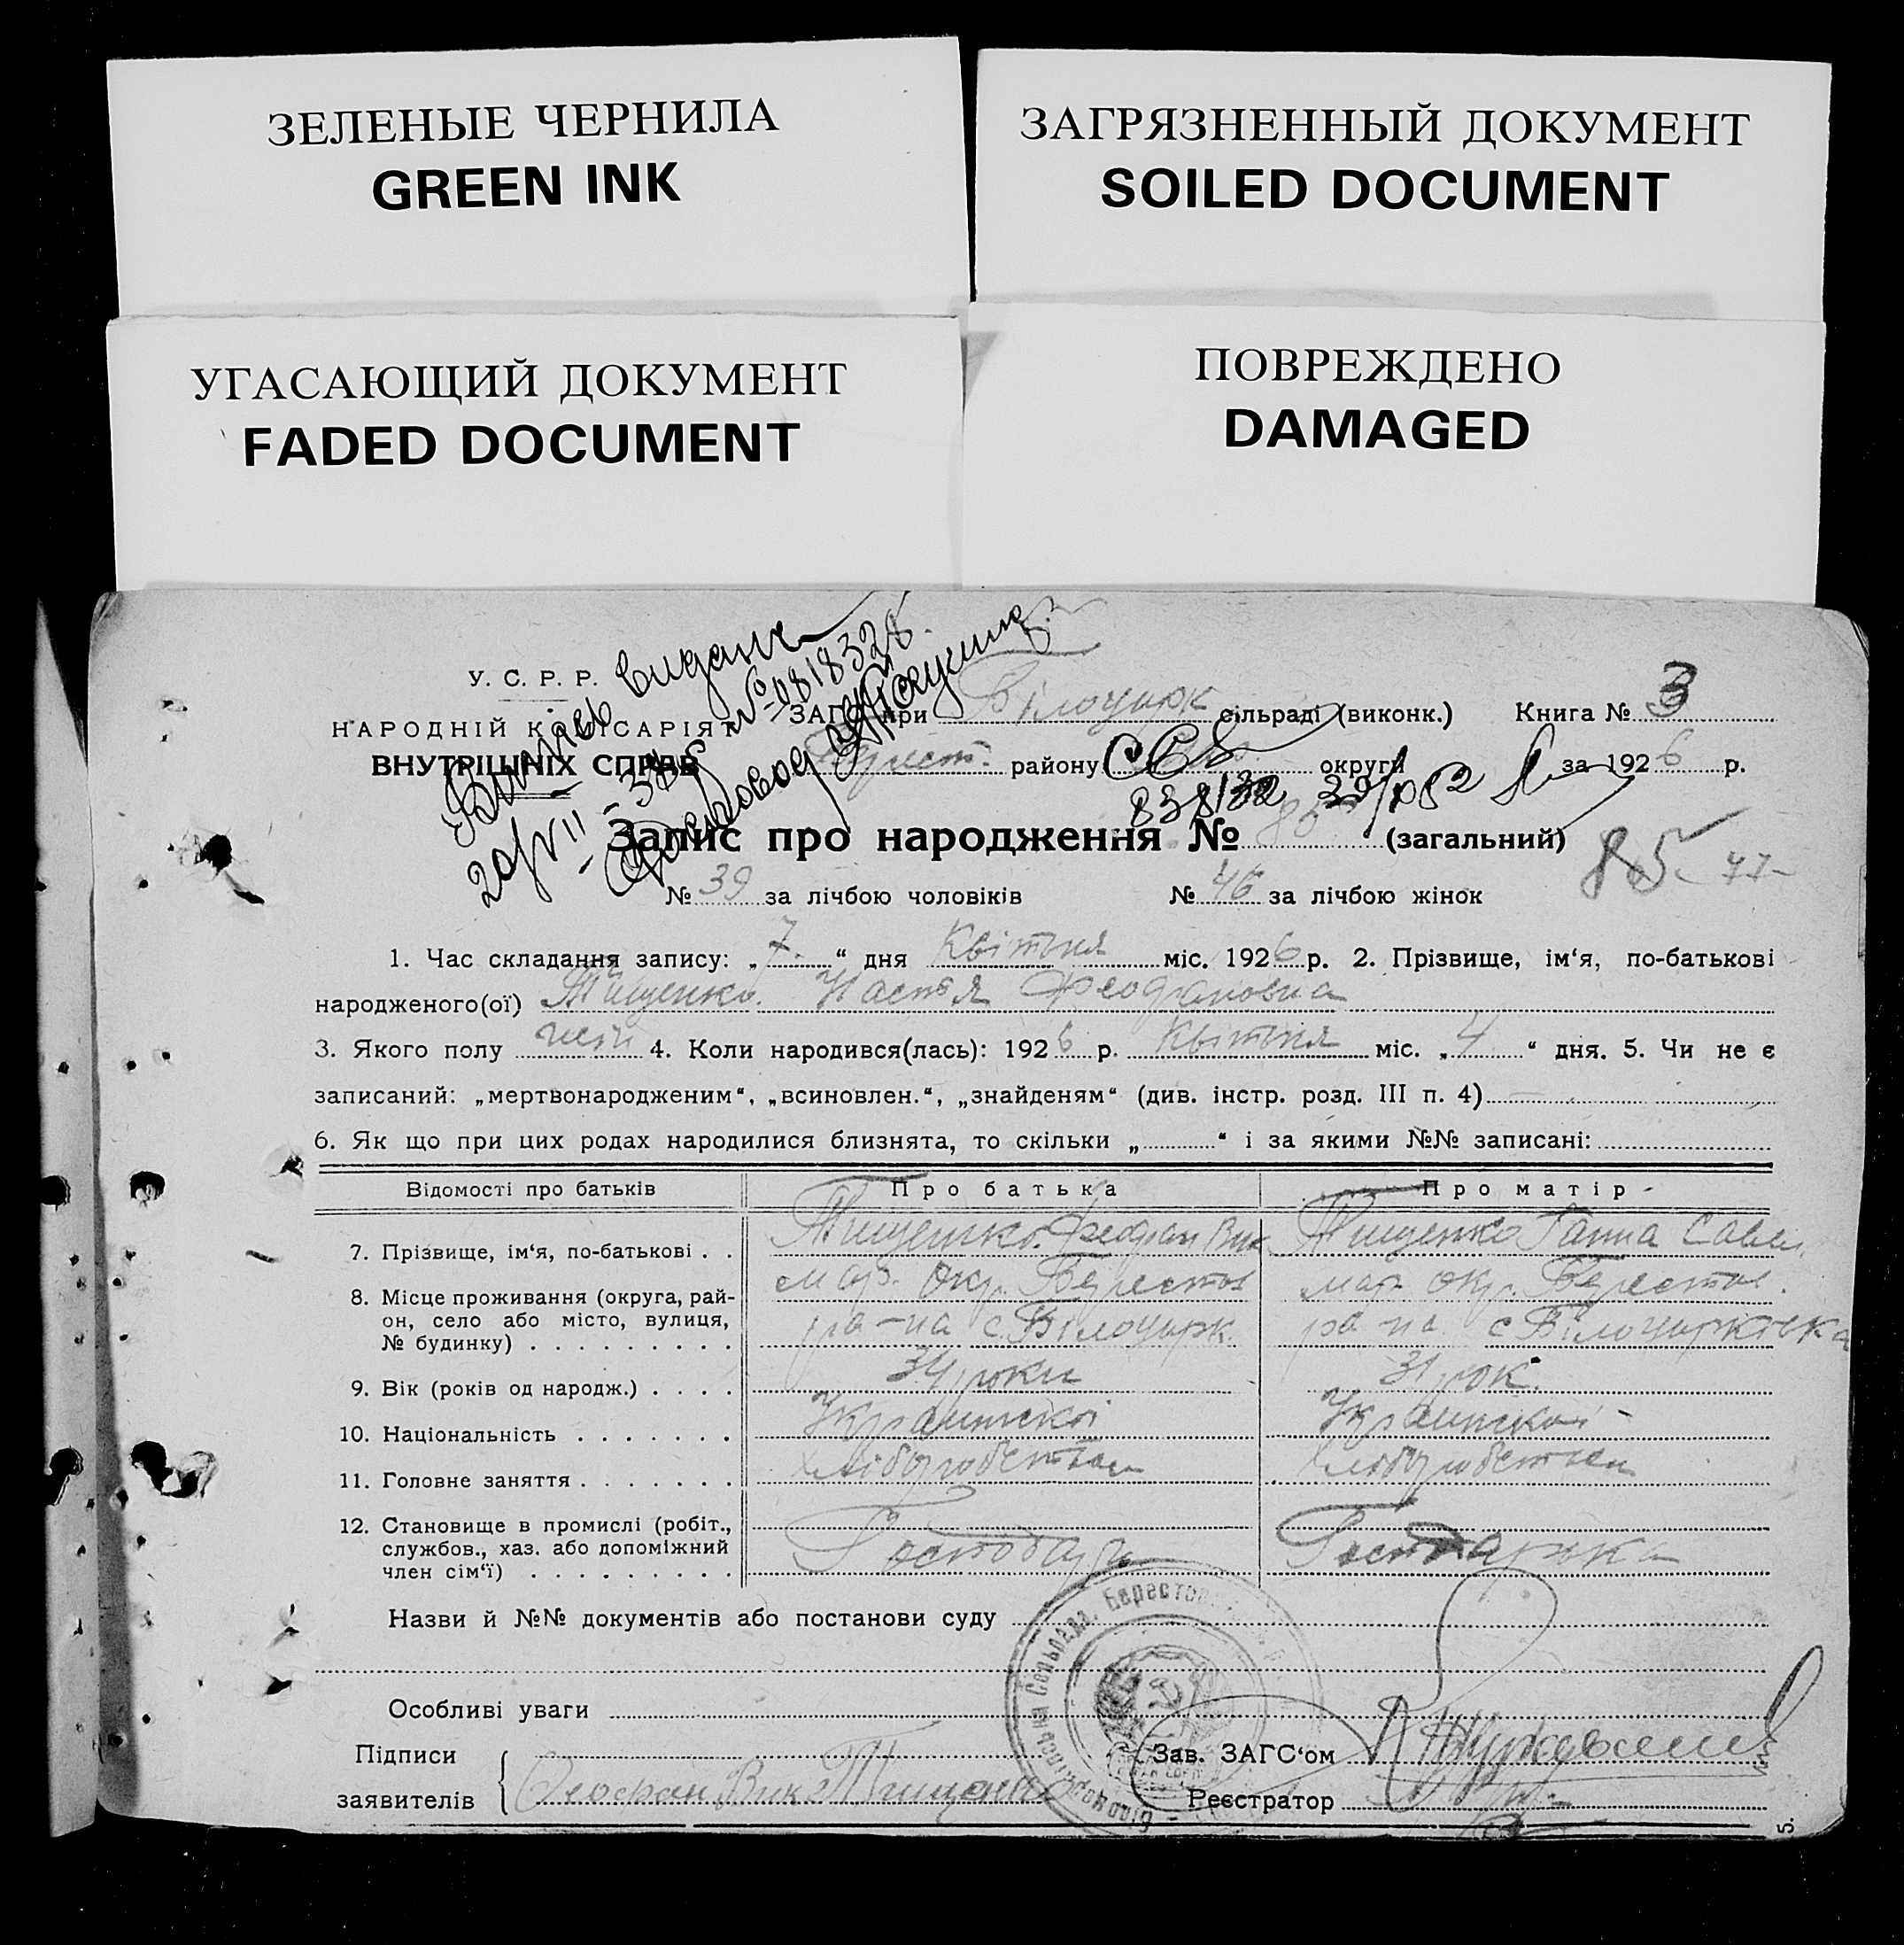 ЗЕЛЕНЫЕ ЧЕРНИЛА
GREEN INK
ЗАГРЯЗНЕННЫЙ ДОКУМЕНТ
SOILED DOCUMENT
УГАСАЮЩИЙ ДОКУМЕНТ
FADED DOCUMENT
ПОВРЕЖДЕНО
DAMAGED
У. С. Р. Р.
НАРОДНІЙ КОМІСАРІЯТ
ВНУТРІШНІХ СПРАВ
№ 0818328
ЗАГС при Білоцерк сільраді (виконк.) Книга № 3
Берест. району округи за 1926 р.
Запис про народження № 85 (загальний)
85
№ 39 за лічбою чоловіків № 46 за лічбою жінок
1. Час складання запису: „7“ дня Квітня міс. 1926 р. 2. Прізвище, ім‘я, по-батькові
народженого(ої) Тищенко Настя Феофановна
3. Якого полу жін 4. Коли народився(лась): 1926 р. Квітня міс. „4“ дня. 5. Чи не є
записаний: „мертвонародженим“, „всиновлен.“, „знайденям“ (див. інстр. розд. III п. 4)
6. Як що при цих родах народилися близнята, то скільки „ “ і за якими №№ записані:
Відомості про батьків Про батька Про матір
7. Прізвище, ім‘я, по-батькові . . Тищенко Феофан Вик Тищенко Ганна Савел.
8. Місце проживання (округа, рай- мар. окр. Берестов мар. окр. Берестов.
он, село або місто, вулиця, ра-на с. Білоцерк. ра-на с Білоцерківка
№ будинку)
9. Вік (років од народж.) . . . . 34 роки 31 рок.
10. Національність Українскої Українскої
11. Головне заняття хліборобство хліборобство
12. Становище в промислі (робіт.,
службов., хаз. або допоміжний Господарь Господарька
член сім‘ї)
Назви й №№ документів або постанови суду
Особливі уваги
Підписи Зав. ЗАГС‘ом
заявителів Феофан Вик Тищенко Реєстратор
5.